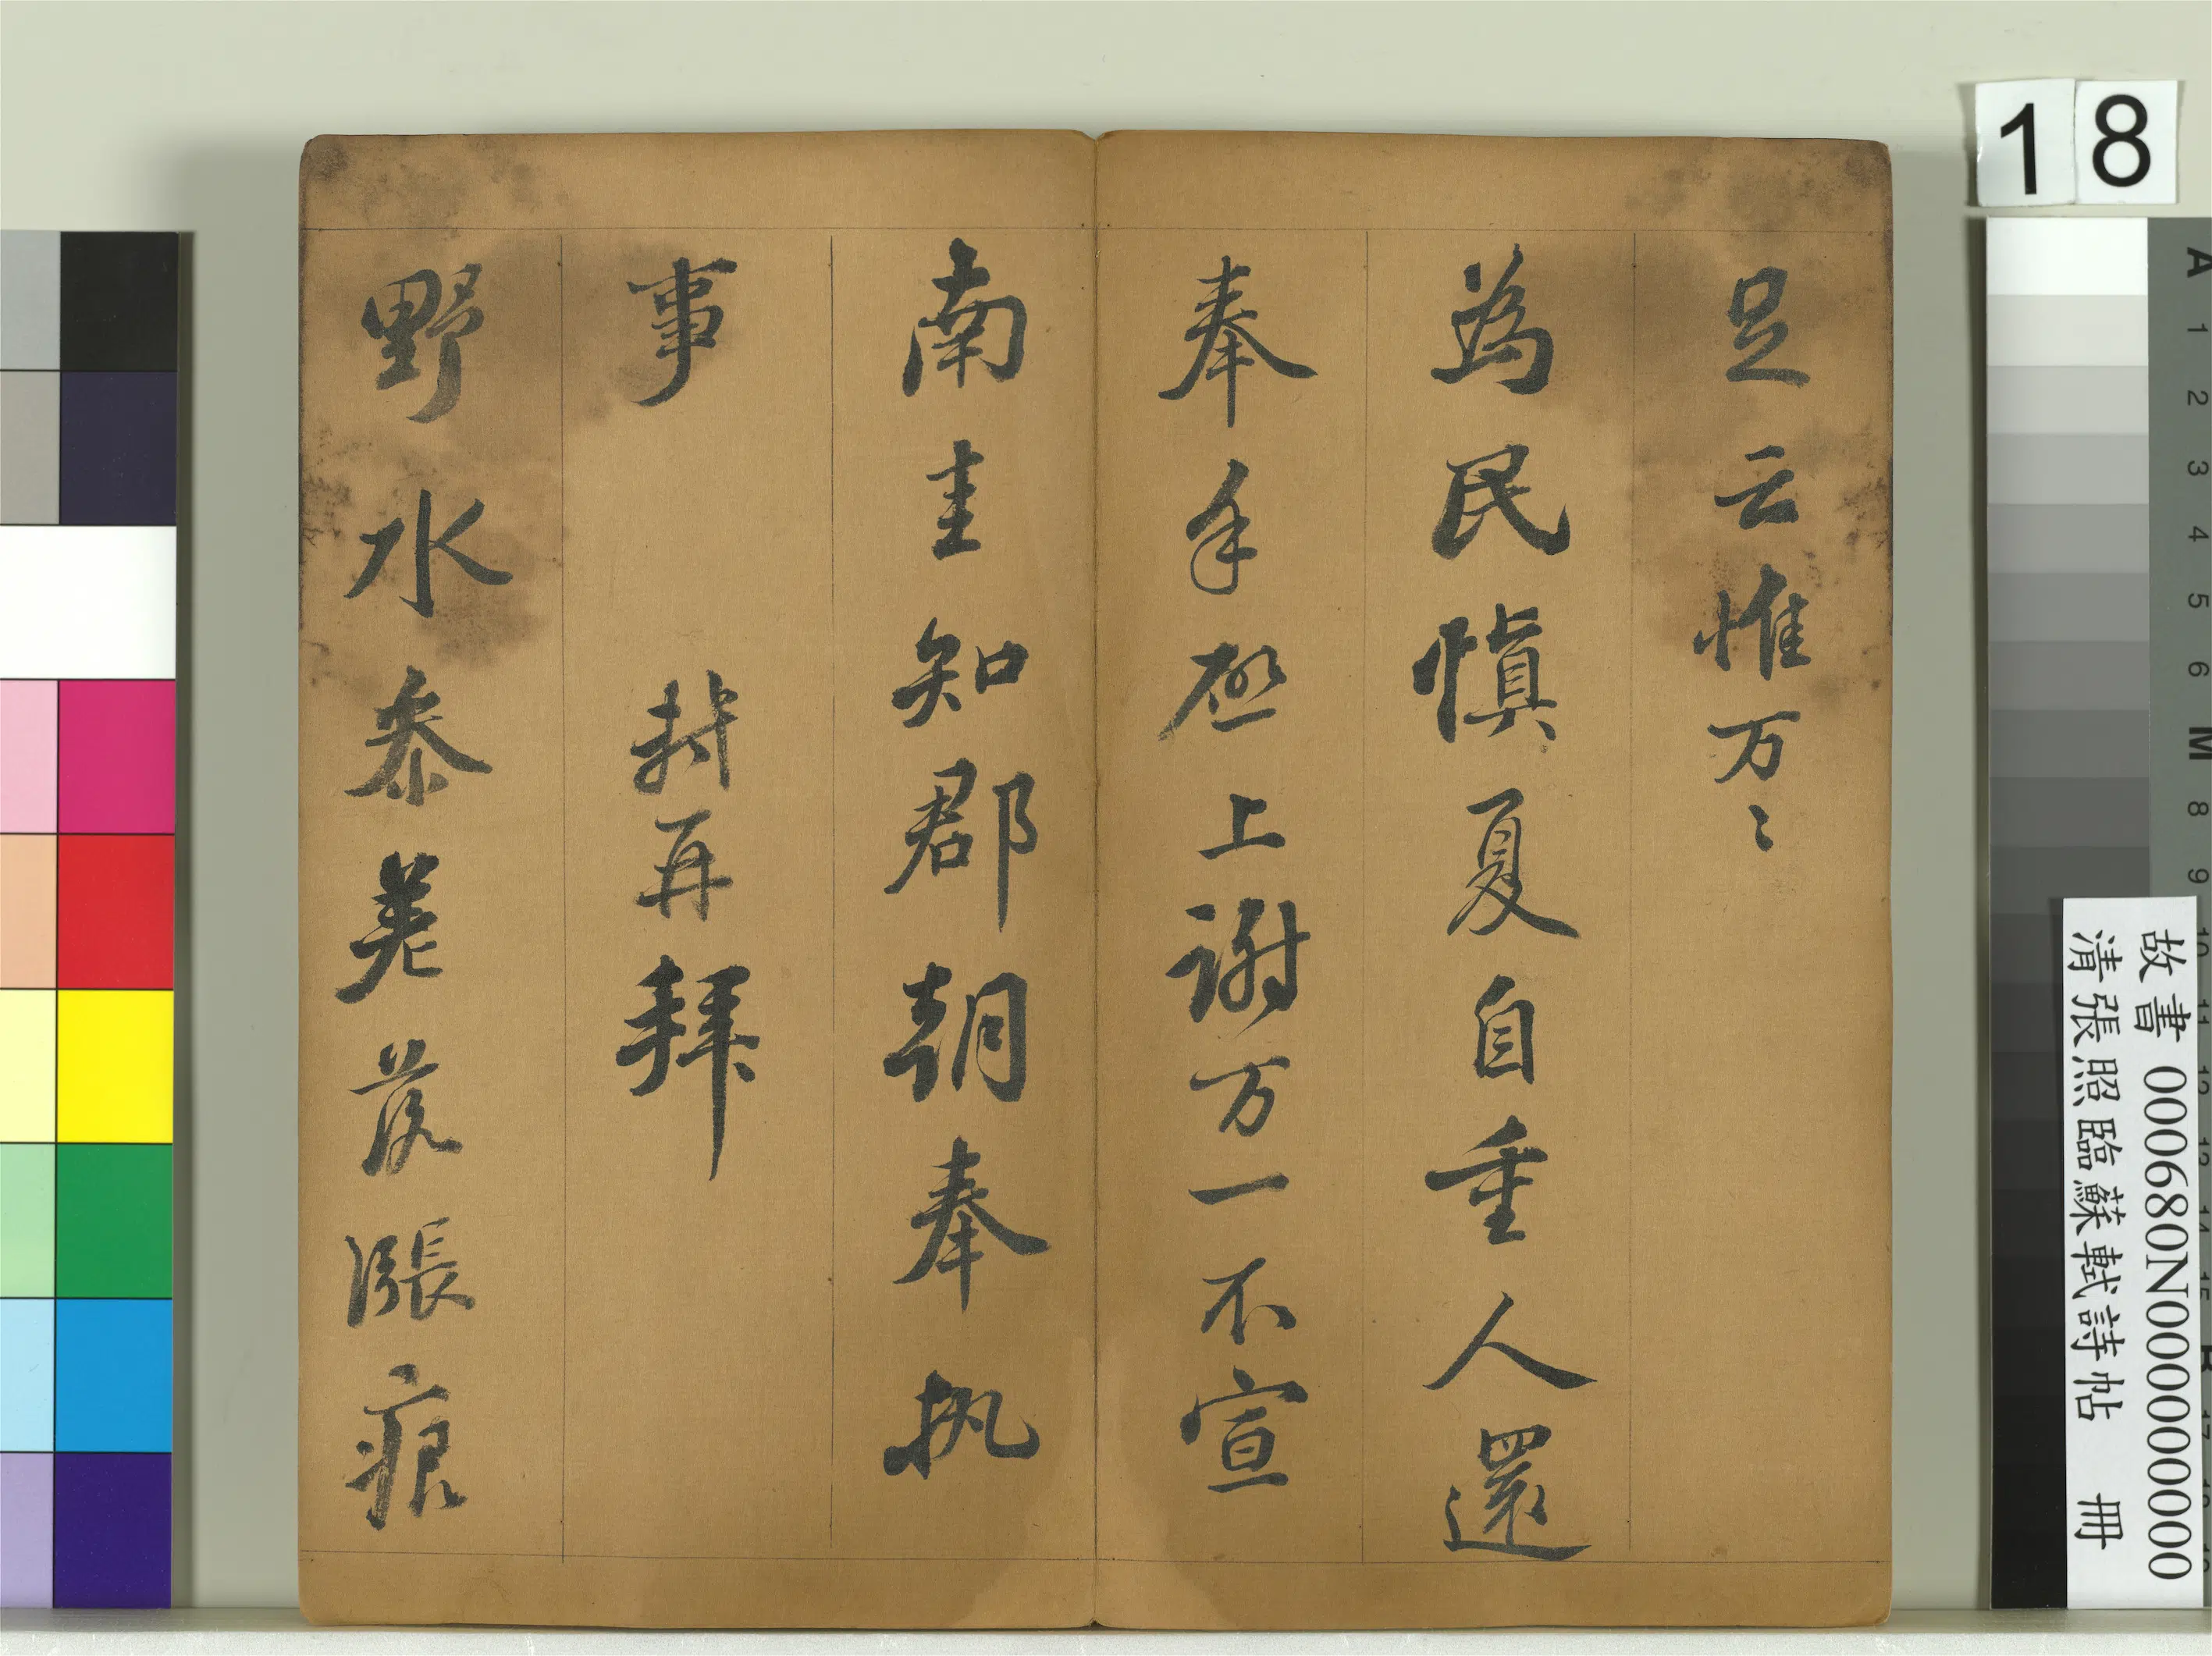 足云惟万〻
為民慎夏自重人還
奉手啓上謝万一不宣
南圭知郡朝奉执
事
軾再拜
野水叅差落漲痕
18
故書 000680N000000000
清張照臨蘇軾詩帖 冊
A 1 2 3 4 5 6 M 8 9